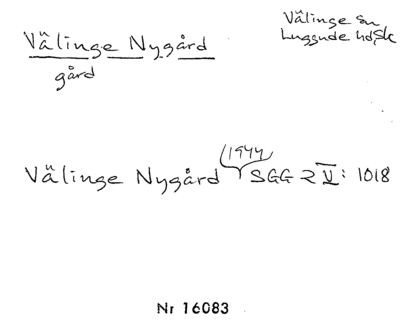 Välinge Nygård
gård
Välinge sn
Luggude hd, Sk
(1944)
Välinge Nygård SGG 2 V: 1018
Nr 16083